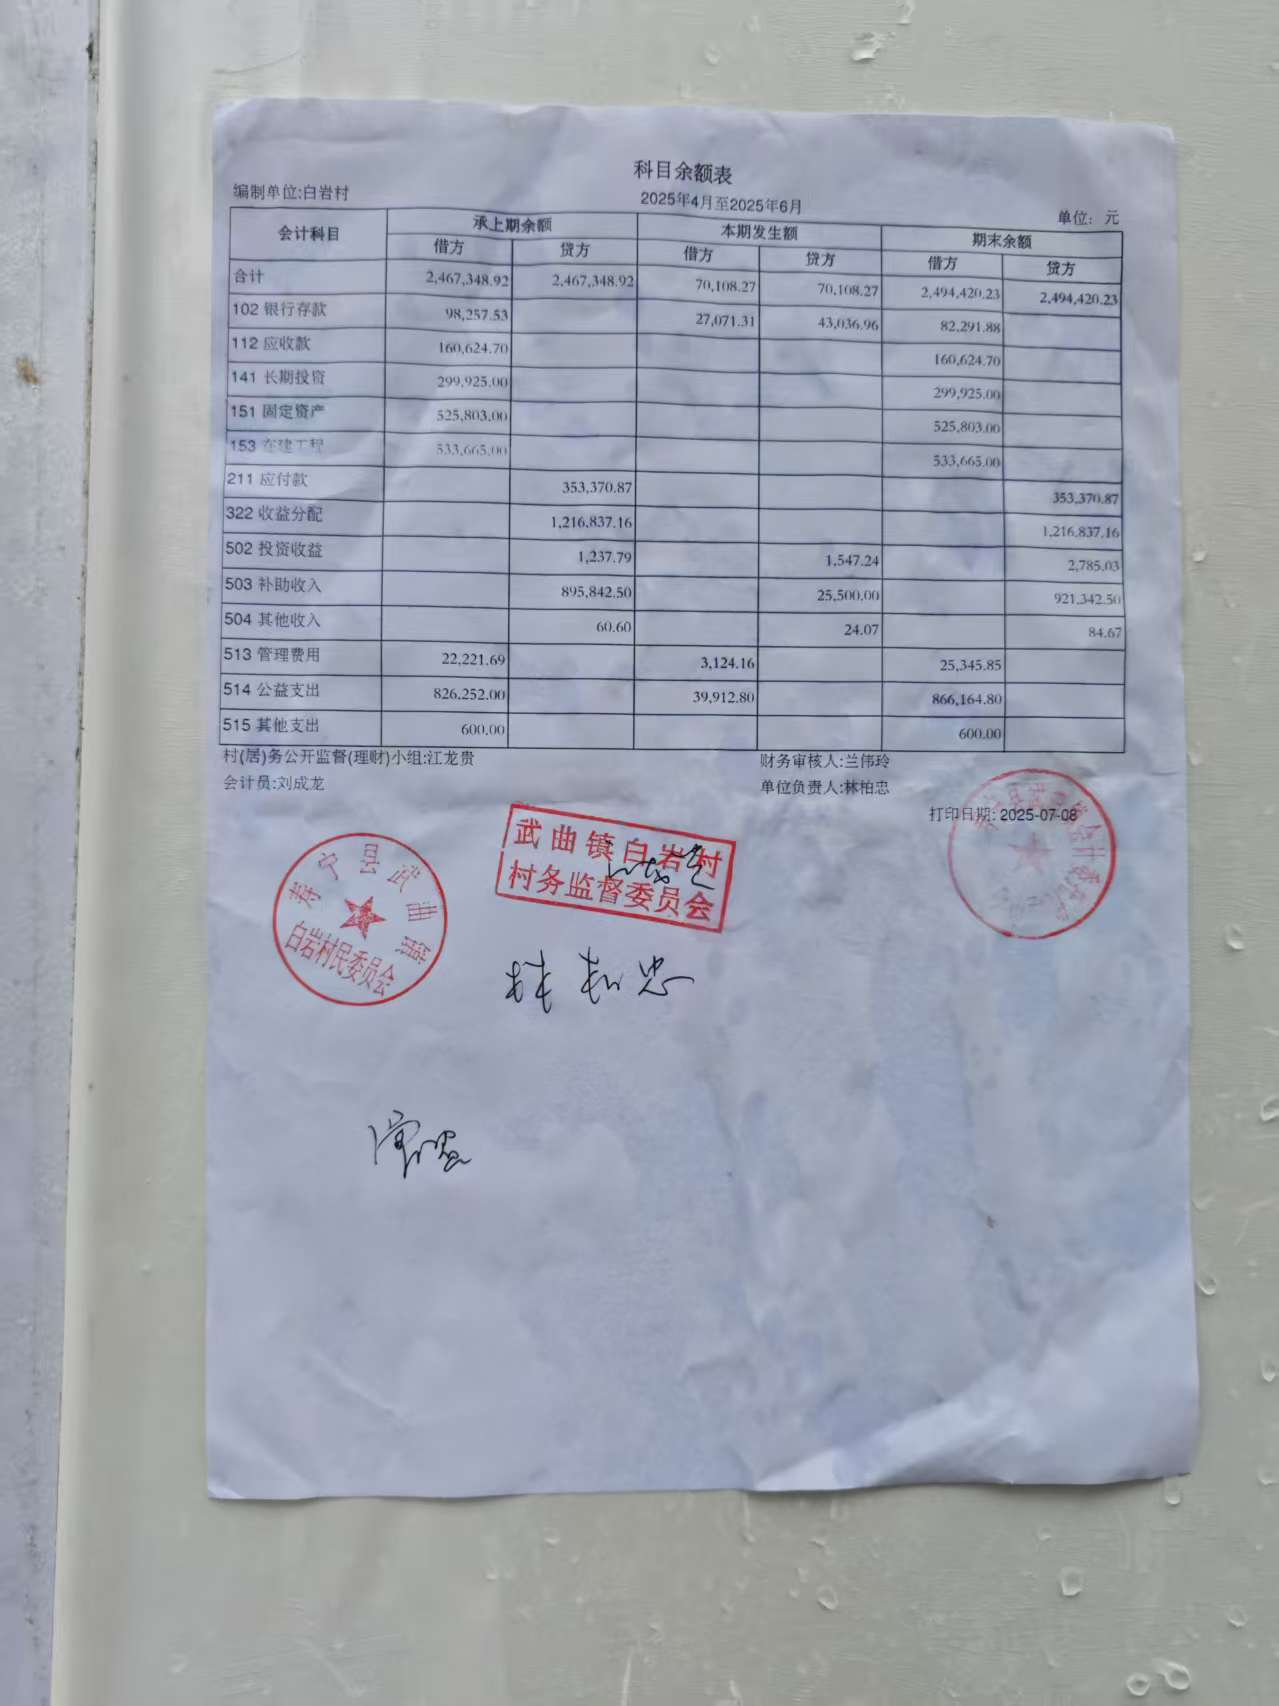 科目余额表
编制单位:白岩村 2025年4月至2025年6月 单位: 元
会计科目 承上期余额 本期发生额 期末余额
借方 贷方 借方 贷方 借方 贷方
合计 2,467,348.92 2,467,348.92 70,108.27 70,108.27 2,494,420.23 2,494,420.23
102 银行存款 98,257.53 27,071.31 43,036.96 82,291.88
112 应收款 160,624.70 160,624.70
141 长期投资 299,925.00 299,925.00
151 固定资产 525,803.00 525,803.00
153 在建工程 533,665.00 533,665.00
211 应付款 353,370.87 353,370.87
322 收益分配 1,216,837.16 1,216,837.16
502 投资收益 1,237.79 1,547.24 2,785.03
503 补助收入 895,842.50 25,500.00 921,342.50
504 其他收入 60.60 24.07 84.67
513 管理费用 22,221.69 3,124.16 25,345.85
514 公益支出 826,252.00 39,912.80 866,164.80
515 其他支出 600.00 600.00
村(居)务公开监督(理财)小组:江龙贵 财务审核人:兰伟玲
会计员:刘成龙 单位负责人:林柏忠
打印日期: 2025-07-08
武曲镇白岩村
村务监督委员会
寿宁县武曲镇
白岩村民委员会
林柏忠